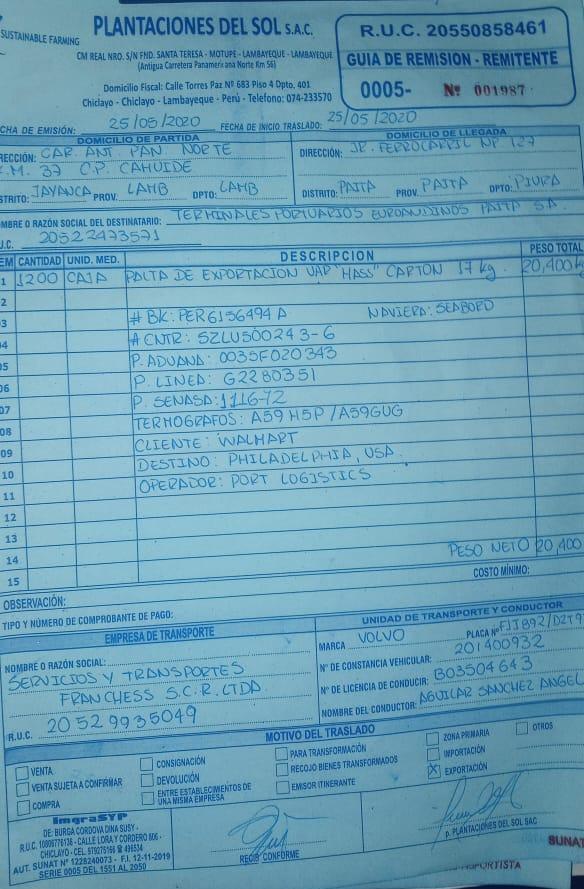 SUSTAINABLE FARMING
PLANTACIONES DEL SOL S.A.C.
CM REAL NRO. S/N FND. SANTA TERESA - MOTUPE - LAMBAYEQUE - LAMBAYEQUE
(Antigua Carretera Panamericana Norte Km 56)
Domicilio Fiscal: Calle Torres Paz Nº 683 Piso 4 Dpto. 401
Chiclayo - Chiclayo - Lambayeque - Perú - Telefono: 074-233570
R.U.C. 20550858461
GUIA DE REMISION - REMITENTE
0005- Nº 001987
CHA DE EMISIÓN: 25/05/2020 FECHA DE INICIO TRASLADO: 25/05/2020
DOMICILIO DE PARTIDA
RECCIÓN: CAR. ANT. PAN. NORTE
K.M. 37 C.P. CAHUIDE
STRITO: JAYANCA PROV. LAMB DPTO: LAMB
DOMICILIO DE LLEGADA
DIRECCIÓN: JR. FERROCARRIL Nº 127
DISTRITO: PAITA PROV. PAITA DPTO: PIURA
OMBRE O RAZÓN SOCIAL DEL DESTINATARIO: TERMINALES PORTUARIOS EUROANDINOS PAITA SA.
U.C. 20522473571
EM CANTIDAD UNID. MED. DESCRIPCION PESO TOTAL
1 1200 CAJA PALTA DE EXPORTACION VAR "HASS" CARTON 17 kg. 20,400 k
2
03 # BK: PER6156494A NAVIERA: SEABORD
04 # CNTR: SZLU500243-6
05 P. ADUANA: 0035F020343
06 P. LINEA: G2280351
07 P. SENASA: 1116-72
08 TERMOGRAFOS: A59H5P / A59GUG
09 CLIENTE: WALMART
10 DESTINO: PHILADELPHIA, USA.
11 OPERADOR: PORT LOGISTICS
12
13
14 PESO NETO 20,400
15 COSTO MÍNIMO:
OBSERVACIÓN:
TIPO Y NÚMERO DE COMPROBANTE DE PAGO:
EMPRESA DE TRANSPORTE
NOMBRE O RAZÓN SOCIAL:
SERVICIOS Y TRANSPORTES
FRANCHESS S.C.R.LTDA.
R.U.C. 20529935049
UNIDAD DE TRANSPORTE Y CONDUCTOR
MARCA VOLVO PLACA Nº
Nº DE CONSTANCIA VEHICULAR: 201400932
Nº DE LICENCIA DE CONDUCIR: B03504643
NOMBRE DEL CONDUCTOR: AGUILAR SANCHEZ ANGEL
MOTIVO DEL TRASLADO
VENTA
VENTA SUJETA A CONFIRMAR
COMPRA
CONSIGNACIÓN
DEVOLUCIÓN
ENTRE ESTABLECIMIENTOS DE
UNA MISMA EMPRESA
PARA TRANSFORMACIÓN
RECOJO BIENES TRANSFORMADOS
EMISOR ITINERANTE
ZONA PRIMARIA
IMPORTACIÓN
X EXPORTACIÓN
OTROS
ImgraSYP
DE: BURGA CORDOVA DINA SUSY -
R.U.C. 10806776136 - CALLE LORA Y CORDERO 806 -
CHICLAYO - CEL. 979275166 # 496534
AUT. SUNAT Nº 1228240073 - F.I. 12-11-2019
SERIE 0005 DEL 1551 AL 2050
RECIBI CONFORME
P. PLANTACIONES DEL SOL SAC
SUNAT